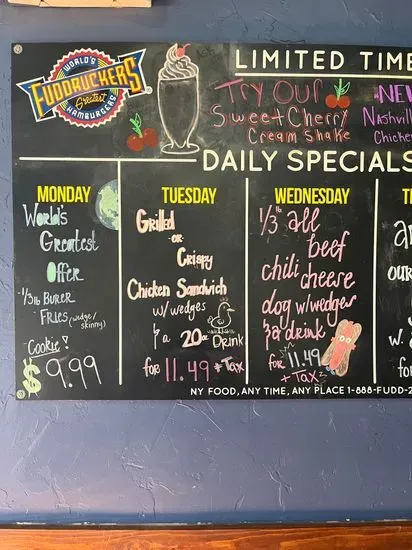 WORLD'S
FUDDRUCKERS
Greatest
HAMBURGERS
LIMITED TIME
Try Our
Sweet Cherry
Cream Shake
NEW
Nashville
Chicken
DAILY SPECIALS
MONDAY
World's
Greatest
Offer
-1/3 lb BURER
FRIES (wedge/
skinny)
-Cookie!
$9.99
TUESDAY
Grilled
or
Crispy
Chicken Sandwich
w/ wedges
& a 20oz Drink
for 11.49 + Tax
WEDNESDAY
1/3 lb all
beef
chili cheese
dog w/wedges
& a drink
for 11.49
+ Tax
T
a
our
w.
for
NY FOOD, ANY TIME, ANY PLACE 1-888-FUDD-2